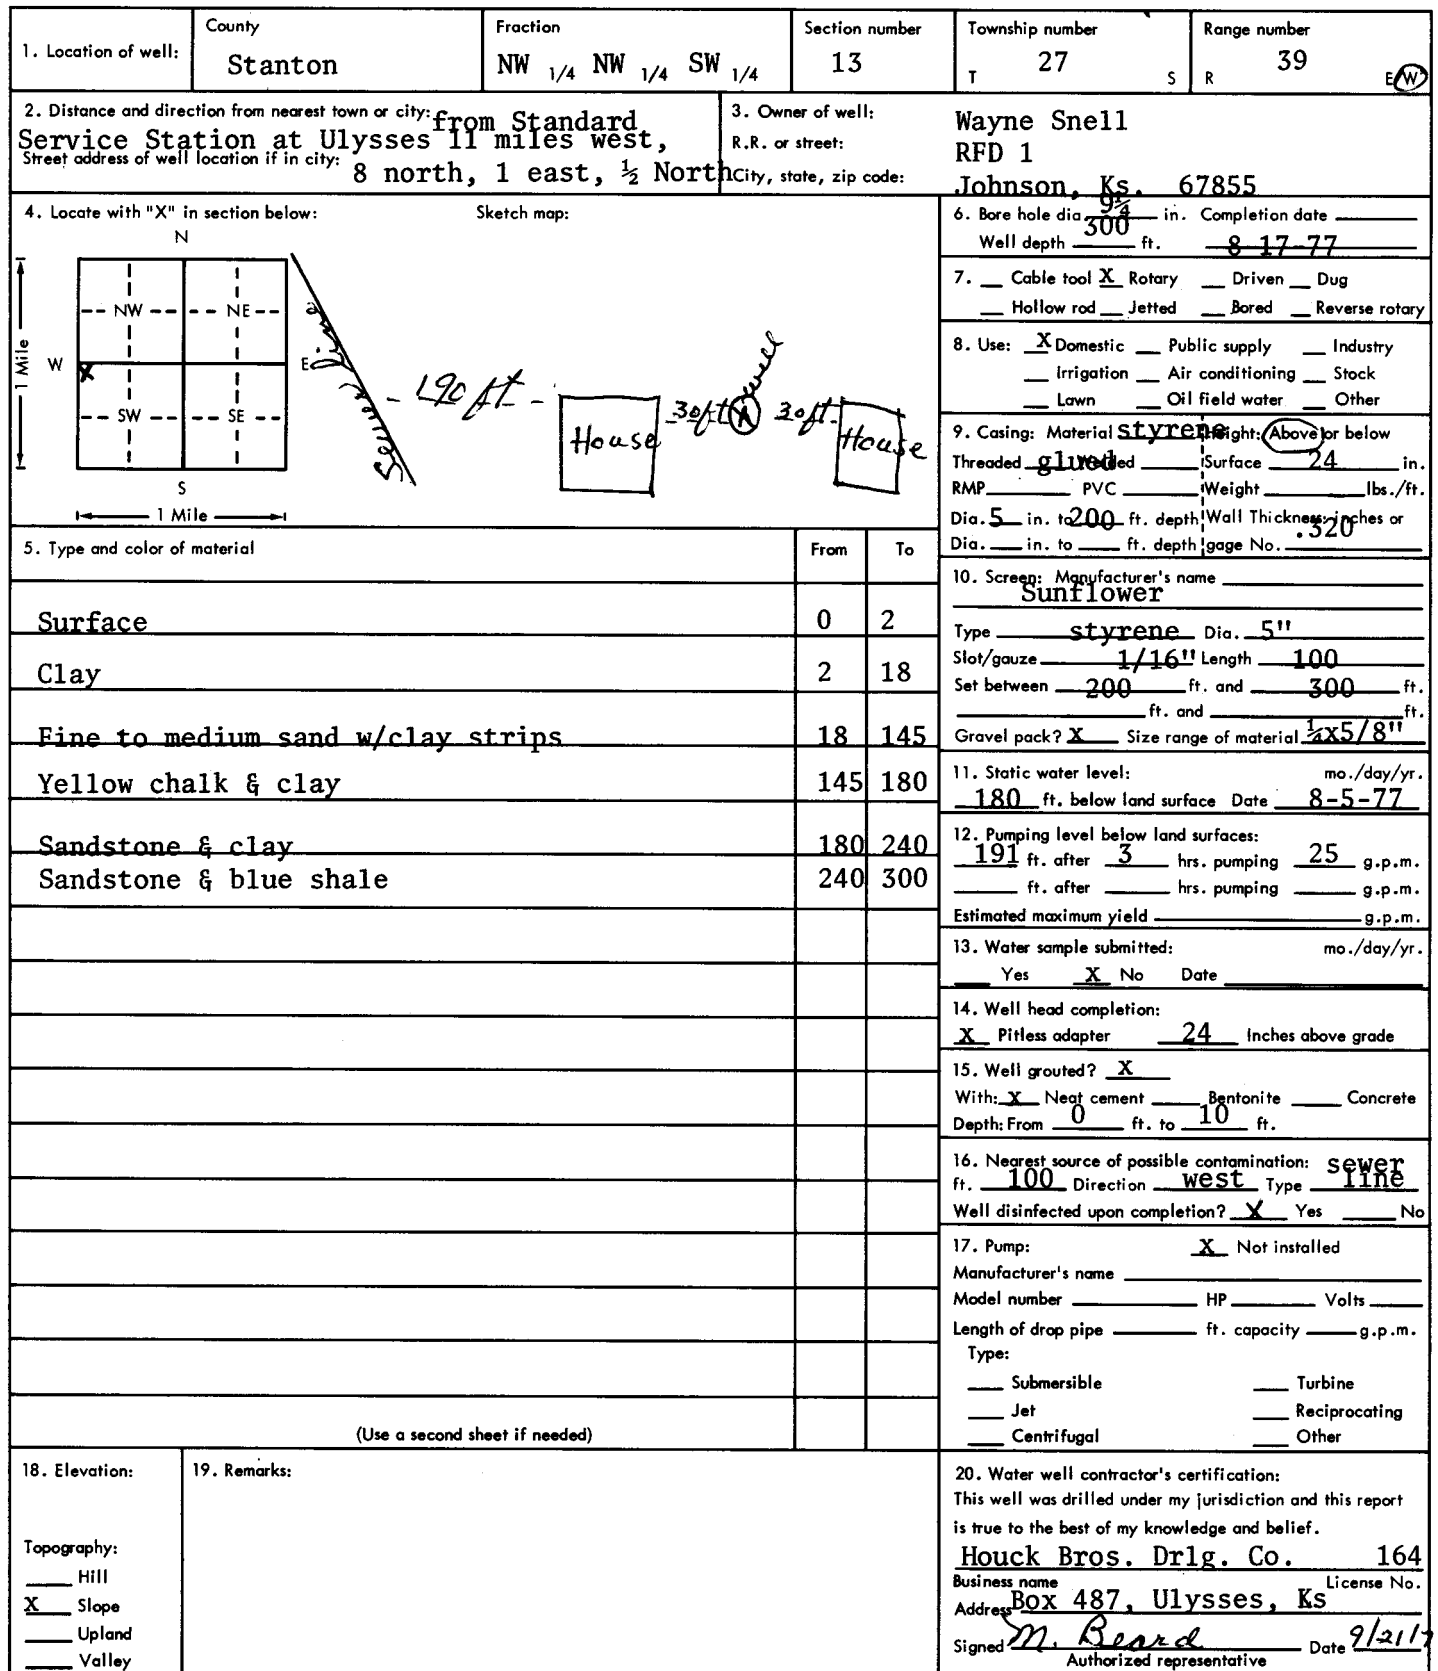 1. Location of well:
County
Stanton
Fraction
NW 1/4 NW 1/4 SW 1/4
Section number
13
Township number
T 27 S
Range number
R 39 E W
2. Distance and direction from nearest town or city: from Standard
Service Station at Ulysses 11 miles west,
Street address of well location if in city:
8 north, 1 east, ½ North
3. Owner of well: Wayne Snell
R.R. or street: RFD 1
City, state, zip code: Johnson, Ks. 67855
4. Locate with "X" in section below:
Sketch map:
N
NW NE
W X E
SW SE
S
1 Mile
1 Mile
Sewer line
190 ft
House
30ft
well
X
30ft
House
5. Type and color of material From To
Surface 0 2
Clay 2 18
Fine to medium sand w/clay strips 18 145
Yellow chalk & clay 145 180
Sandstone & clay 180 240
Sandstone & blue shale 240 300
(Use a second sheet if needed)
6. Bore hole dia. 9¼ in. Completion date
Well depth 300 ft. 8-17-77
7. Cable tool X Rotary Driven Dug
Hollow rod Jetted Bored Reverse rotary
8. Use: X Domestic Public supply Industry
Irrigation Air conditioning Stock
Lawn Oil field water Other
9. Casing: Material styrene Height: Above or below
Threaded glued Welded Surface 24 in.
RMP PVC Weight lbs./ft.
Dia. 5 in. to 200 ft. depth Wall Thickness: inches or
Dia. in. to ft. depth gage No. .320
10. Screen: Manufacturer's name
Sunflower
Type styrene Dia. 5"
Slot/gauze 1/16" Length 100
Set between 200 ft. and 300 ft.
ft. and ft.
Gravel pack? X Size range of material ¼x5/8"
11. Static water level: mo./day/yr.
180 ft. below land surface Date 8-5-77
12. Pumping level below land surfaces:
191 ft. after 3 hrs. pumping 25 g.p.m.
ft. after hrs. pumping g.p.m.
Estimated maximum yield g.p.m.
13. Water sample submitted: mo./day/yr.
Yes X No Date
14. Well head completion:
X Pitless adapter 24 Inches above grade
15. Well grouted? X
With: X Neat cement Bentonite Concrete
Depth: From 0 ft. to 10 ft.
16. Nearest source of possible contamination: sewer
ft. 100 Direction west Type line
Well disinfected upon completion? X Yes No
17. Pump: X Not installed
Manufacturer's name
Model number HP Volts
Length of drop pipe ft. capacity g.p.m.
Type:
Submersible Turbine
Jet Reciprocating
Centrifugal Other
18. Elevation:
Topography:
Hill
X Slope
Upland
Valley
19. Remarks:
20. Water well contractor's certification:
This well was drilled under my jurisdiction and this report
is true to the best of my knowledge and belief.
Houck Bros. Drlg. Co. 164
Business name License No.
Address Box 487, Ulysses, Ks
Signed M. Beard Date 9/21/7
Authorized representative